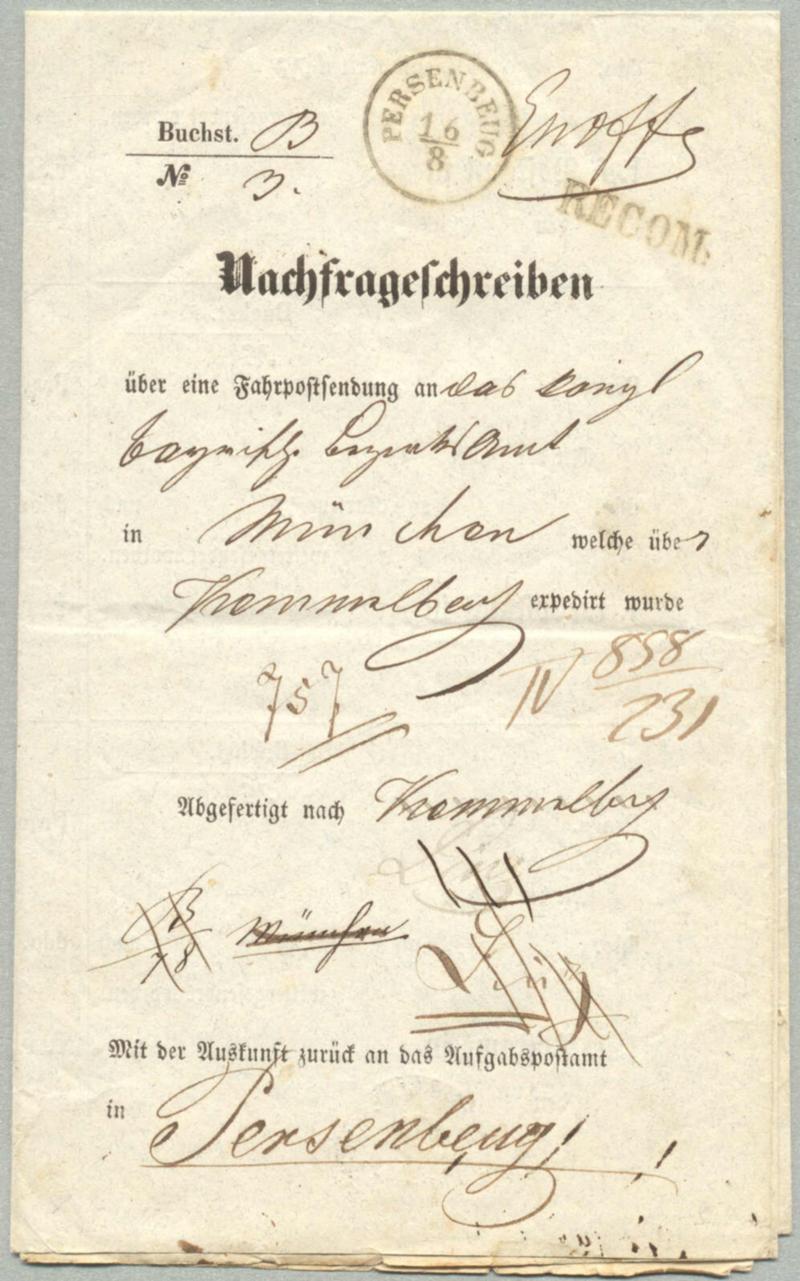 PERSENBEUG
16
8
Buchst. B
№ 3.
RECOM.
Nachfrageschreiben
über eine Fahrpostsendung an das königl
bayrisch. Bezirks Amt
in München welche über
Kemmelbach expedirt wurde
757
IV 858
231
Abgefertigt nach Kemmelbach
B
78
München
Linz
Mit der Auskunft zurück an das Aufgabspostamt
in Persenbeug!